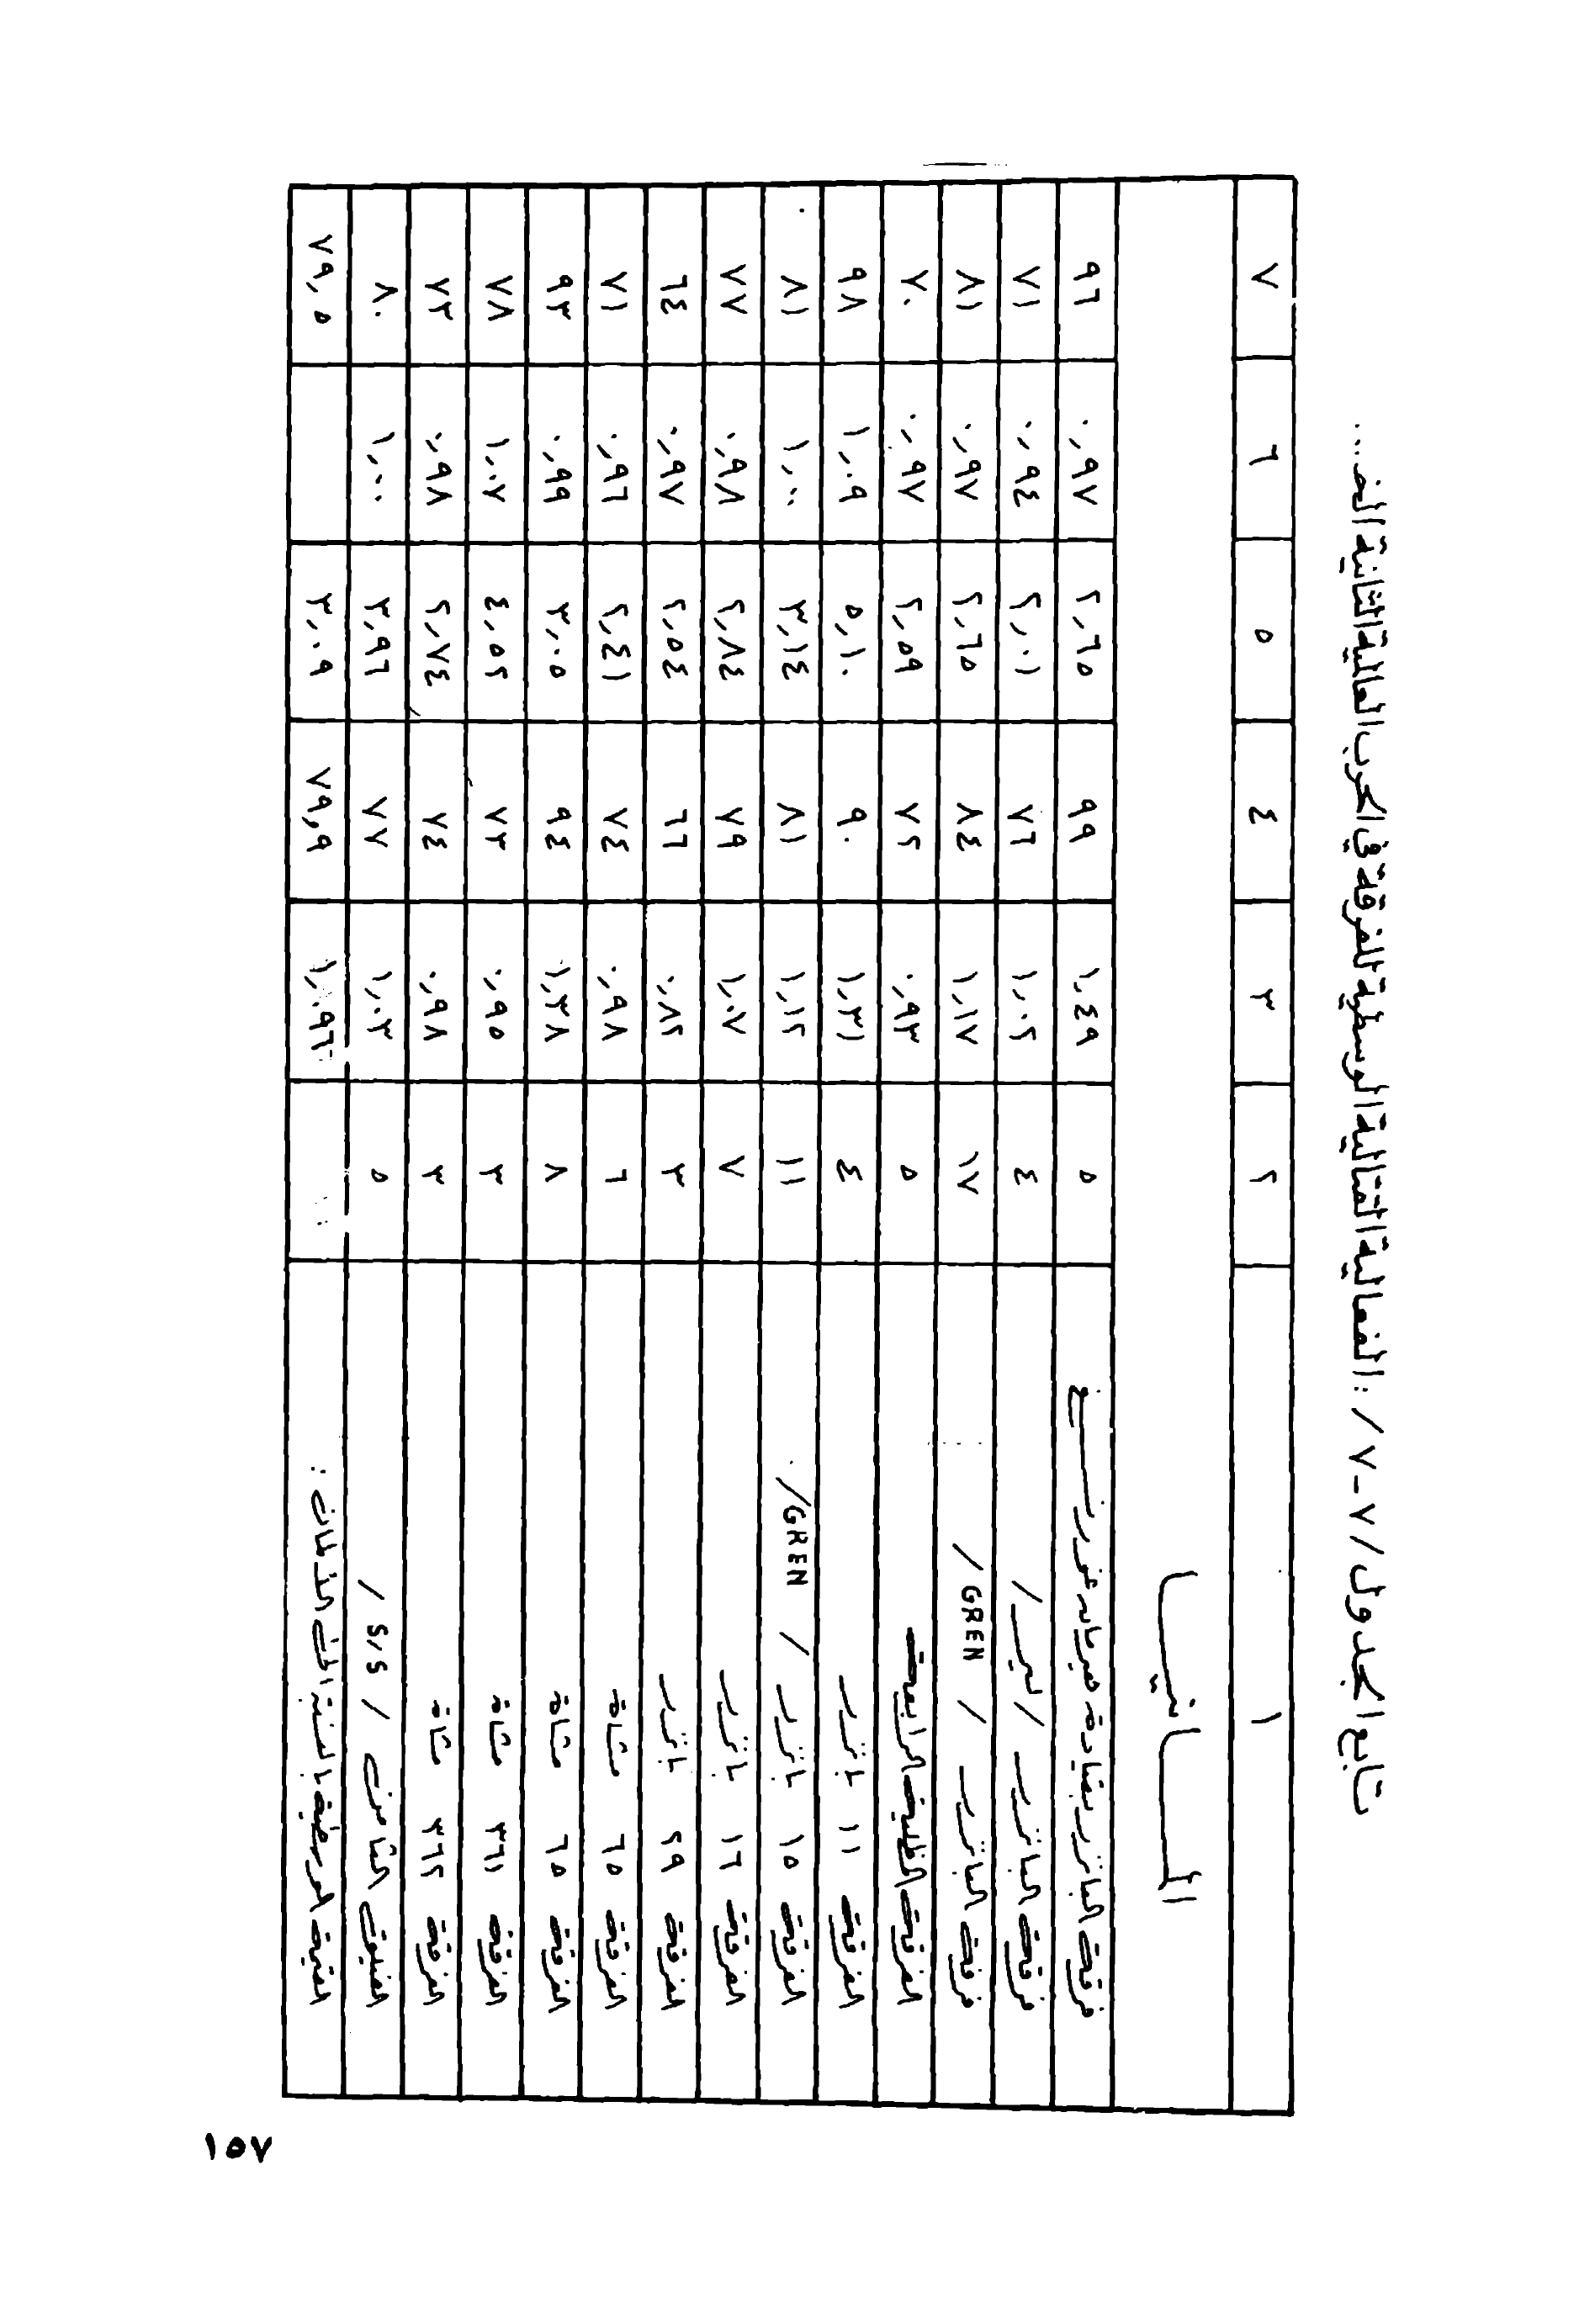 تابع الجدول /٧-٧/: الفعالية القتالية الوسطية للفرقة في الحرب العالمية الثانية الخـ...
١ ٢ ٣ ٤ ٥ ٦ ٧
المـــانيـــا
فرقة البانزر بقيادة هيرمان غورنـــغ ٥ ١,٤٩ ٩٩ ٢,٦٥ ٠,٩٧ ٩٦
فرقة البانزر /لير/ ٤ ١,٠٢ ٧٦ ٢,٠١ ٠,٩٤ ٧١
فرقة البانزر / GREN / ١٧ ١,١٧ ٨٤ ٢,٦٥ ٠,٩٧ ٨١
الفرقة المظلية الرابعة ٥ ٠,٩٣ ٧٢ ٢,٥٩ ٠,٩٧ ٧٠
الفرقة ١١ بانزر ٤ ١,٣١ ٩٠ ٥,١٠ ١,٠٩ ٩٨
الفرقة ١٥ بانزر / GREN/ ١١ ١,١٢ ٨١ ٣,١٤ ١,٠٠ ٨١
الفرقة ١٦ بانزر ٧ ١,٠٧ ٧٩ ٢,٨٤ ٠,٩٨ ٧٧
الفرقة ٢٩ بانزر ٣ ٠,٨٢ ٦٦ ٢,٥٤ ٠,٩٧ ٦٤
الفرقة ٦٥ مشاة ٦ ٠,٩٨ ٧٤ ٢,٤١ ٠,٩٦ ٧١
الفرقة ٦٥ مشاة ٨ ١,٣٨ ٩٤ ٣,٠٥ ٠,٩٩ ٩٣
الفرقة ٣٦١ مشاة ٣ ٠,٩٥ ٧٣ ٤,٥٢ ١,٠٧ ٧٨
الفرقة ٣٦٢ مشاة ٣ ٠,٩٨ ٧٤ ٢,٧٤ ٠,٩٨ ٧٣
الفيلق الثامن / S/S / ٥ ١,٠٣ ٧٧ ٣,٩٦ ١,٠٠ ٨٠
القيمة الوسطية بالنسبة إلى الألمان: ١,٠٩٦ ٧٩,٩ ٣,٠٩ ٧٩,٥
١٥٧